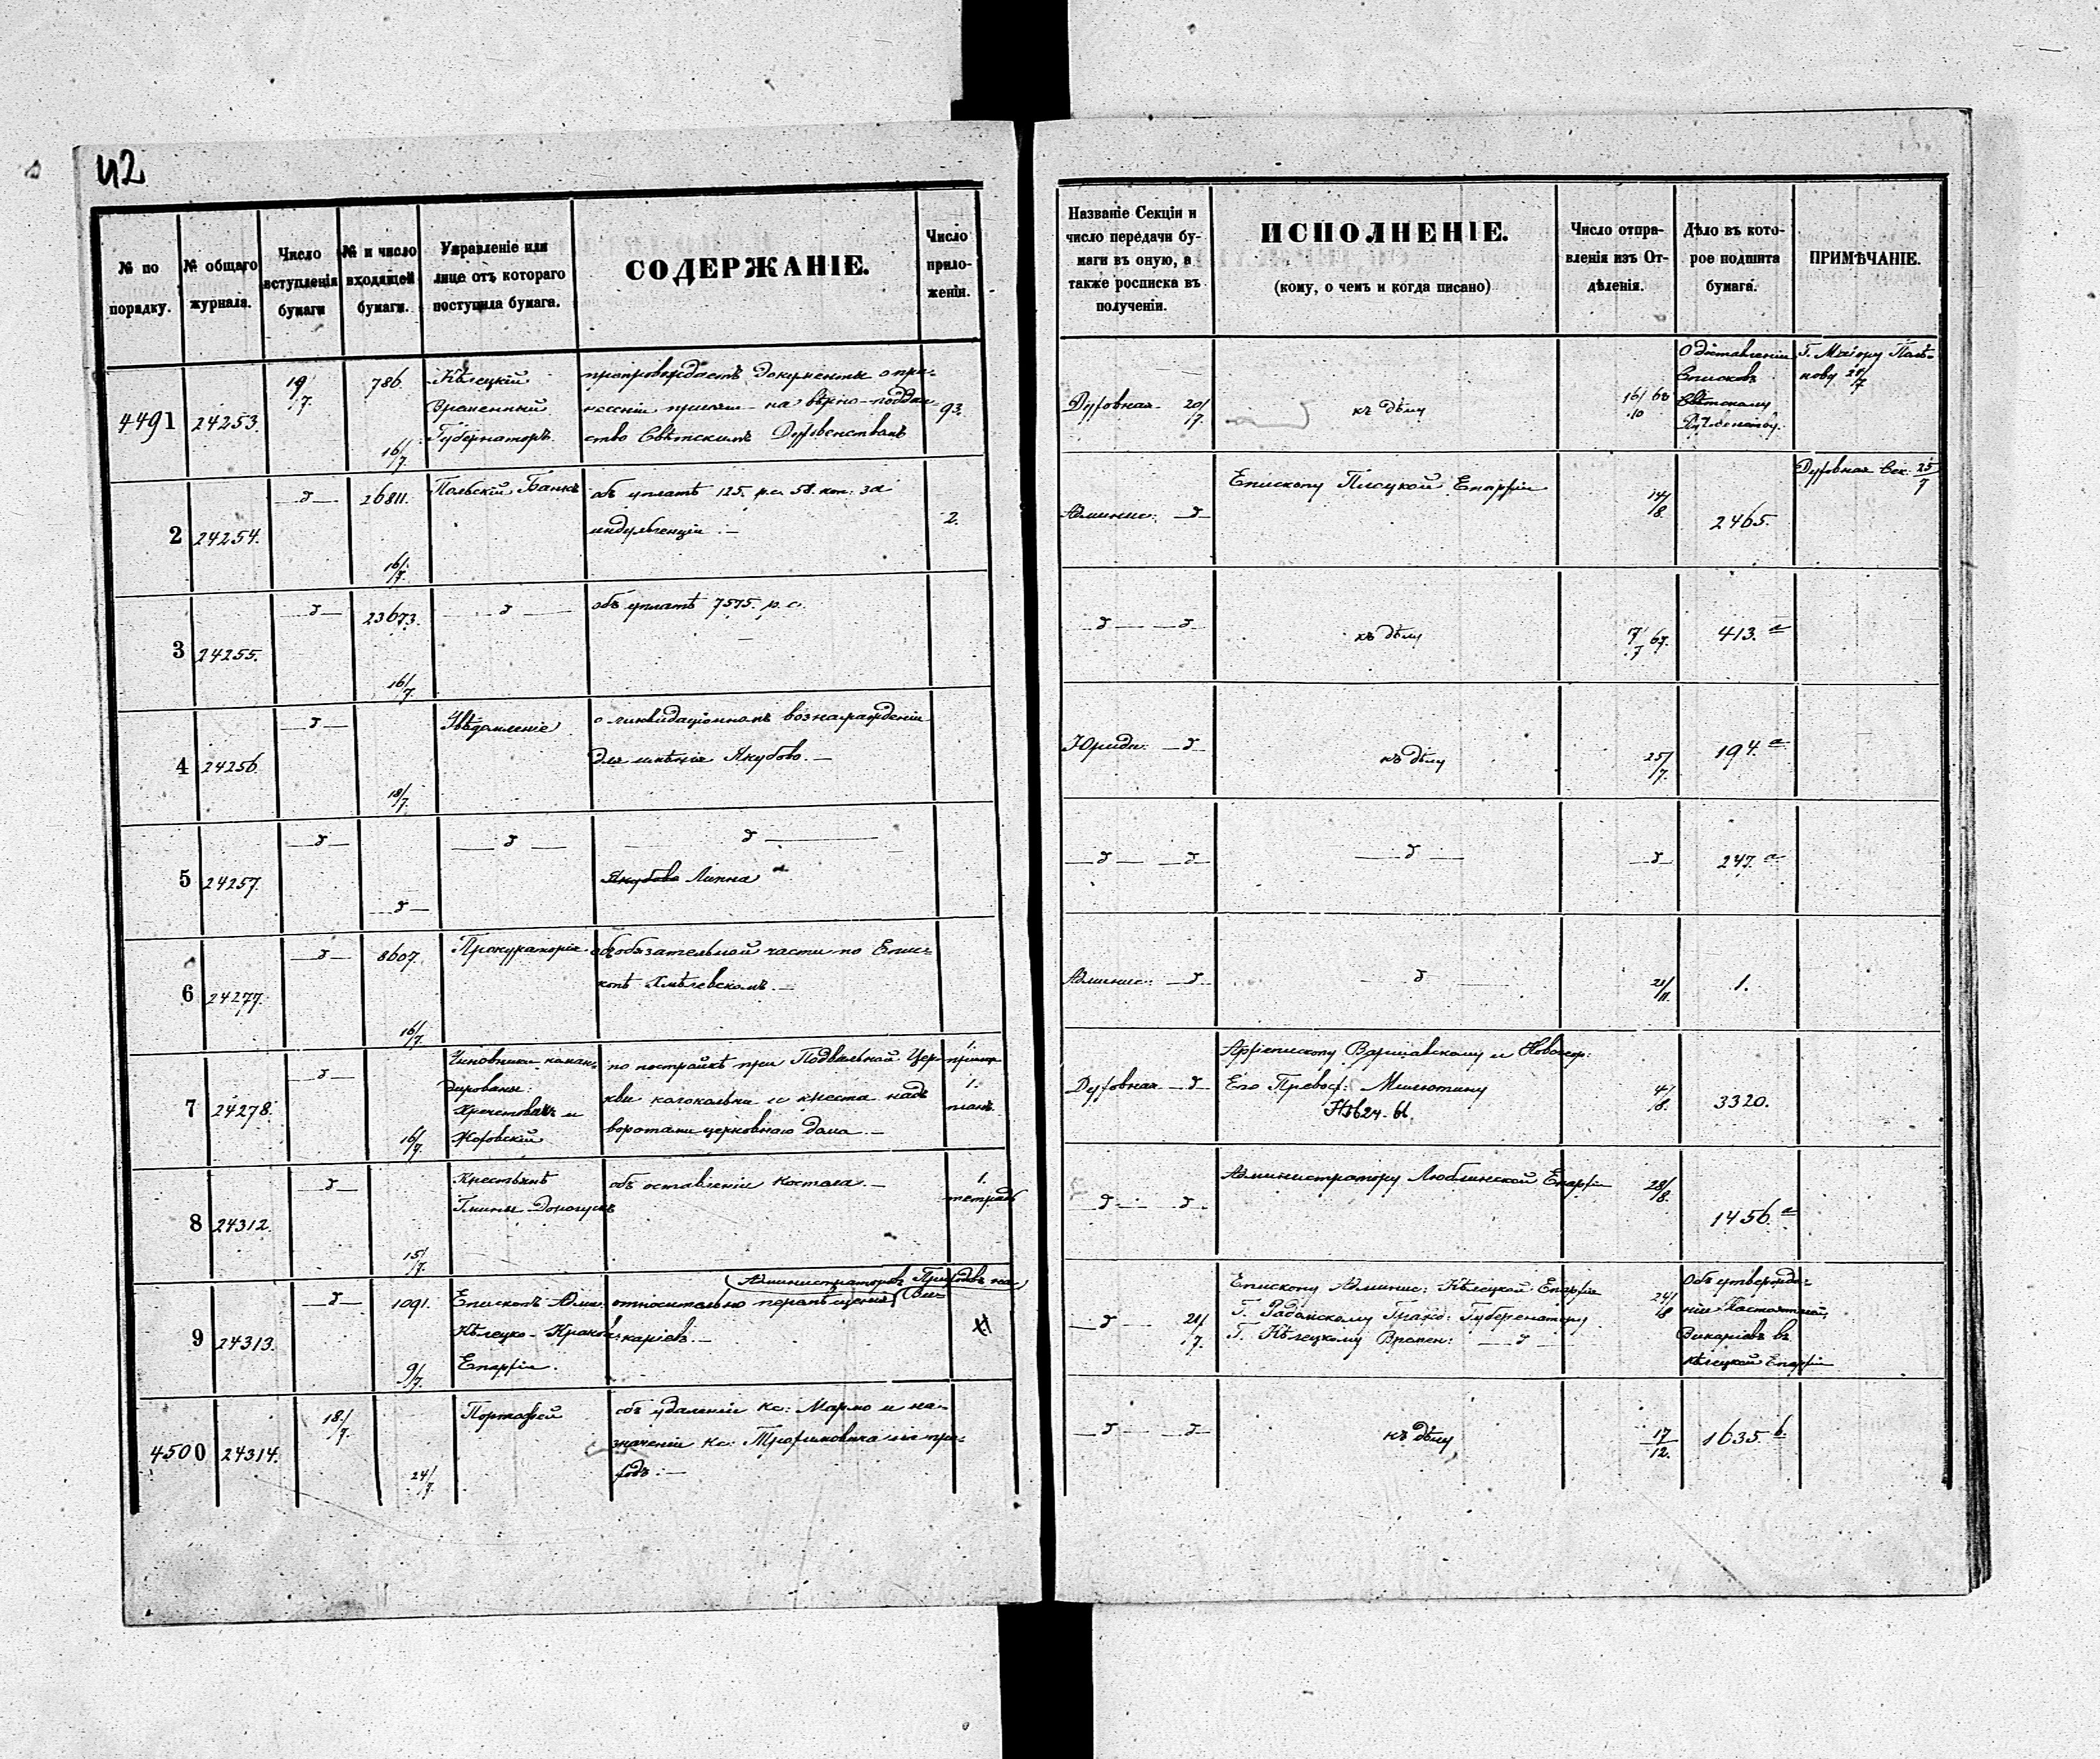 42
№ по порядку.
№ общаго журнала.
Число вступленія бумаги
№ и число входящей бумаги.
Управленіе или лице отъ котораго поступила бумага.
СОДЕРЖАНІЕ.
Число приложеній.
Названіе Секціи и число передачи бумаги въ оную, а также росписка въ полученіи.
ИСПОЛНЕНІЕ.
(кому, о чемъ и когда писано)
Число отправленія изъ Отдѣленія.
Дѣло въ которое подшита бумага.
ПРИМѢЧАНІЕ.
4491 24253. 19/7. 786. 16/7.
Кѣлецкій
Временный
Губернаторъ
препровождаетъ документы о при-
несеніи присяги на вѣрно-поддан-
ство Свѣтскимъ Духовенствомъ
93.
Духовная 20/7.
къ дѣлу
16/10 68
О доставленіи
Списковъ
Свѣтскому
Духовенству.
Г. Маіору
2 24254. 26811. 16/7.
Польскій Банкъ
объ уплатѣ 125. р.с. 58. коп: за
индульгенціи. —
2.
Админис:
Епископу Плоцкой Епархіи
14/8.
2465.
Духовная Сек. 25/7
3 24255. 23673. 16/7.
объ уплатѣ 7575. р. с.
къ дѣлу
7/7 67.
413. а
4 24256 18/7.
Увѣдомленіе
о ликвидаціонномъ вознагражденіи
для имѣнія Якубово. —
Юриди:
къ дѣлу
25/7.
194. а
5 24257.
Якубово Липна
247. а
6 24277. 8607. 16/7.
Прокураторія
объ обязательной части по Епис-
копѣ Хмѣлевскомъ. —
Админис:
21/11.
1.
7 24278. 16/7.
Чиновники коман-
дированые:
и
по постройкѣ при Подвальной Цер-
кви колокольни и креста надъ
воротами церковнаго дома. —
1.
1.
планъ.
Духовная
Архіепископу Варшавскому и Новогер:
Его Превосх: Милютину
№ 624-61.
4/8.
3320.
8 24312. 15/7.
Крестьянъ
Гмины
объ оставленіи Костела. —
1.
тетрадь
Администратору Люблинской Епархіи
28/8.
1456. а
9 24313. 1091. 9/7.
Епископъ Адми:
Кѣлецко-Краков:
Епархіи.
Администраторовъ Приходовъ на
относительно перемѣщенія Ви-
каріевъ. —
21/7.
Епископу Админис: Кѣлецкой Епархіи
Г. Радомскому Гражд: Губернатору
Г. Кѣлецкому Времен:
24/8
Объ утвержде-
ніи Настоятелей,
Викаріевъ въ
Кѣлецкой Епархіи
4500 24314. 18/7. 24/7.
объ удаленіи Кс: Марто и на-
значеніи Кс: Трофимовича на при-
ходъ. —
къ дѣлу
17/12.
1635. b.